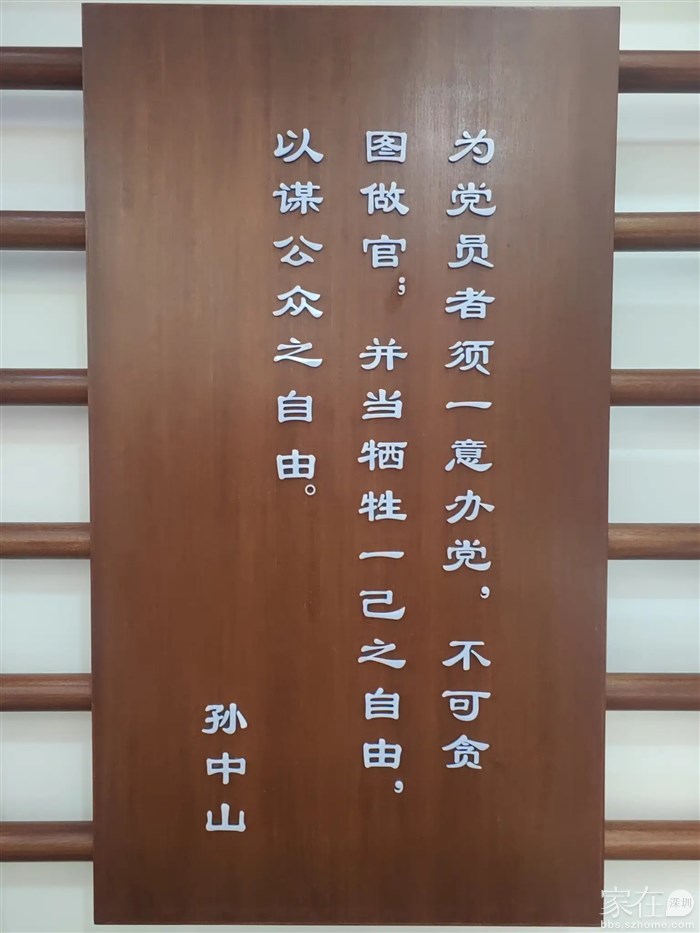 为党员者须一意办党，不可贪
图做官；并当牺牲一己之自由，
以谋公众之自由。
孙中山
家在深圳
bbs.szhome.com